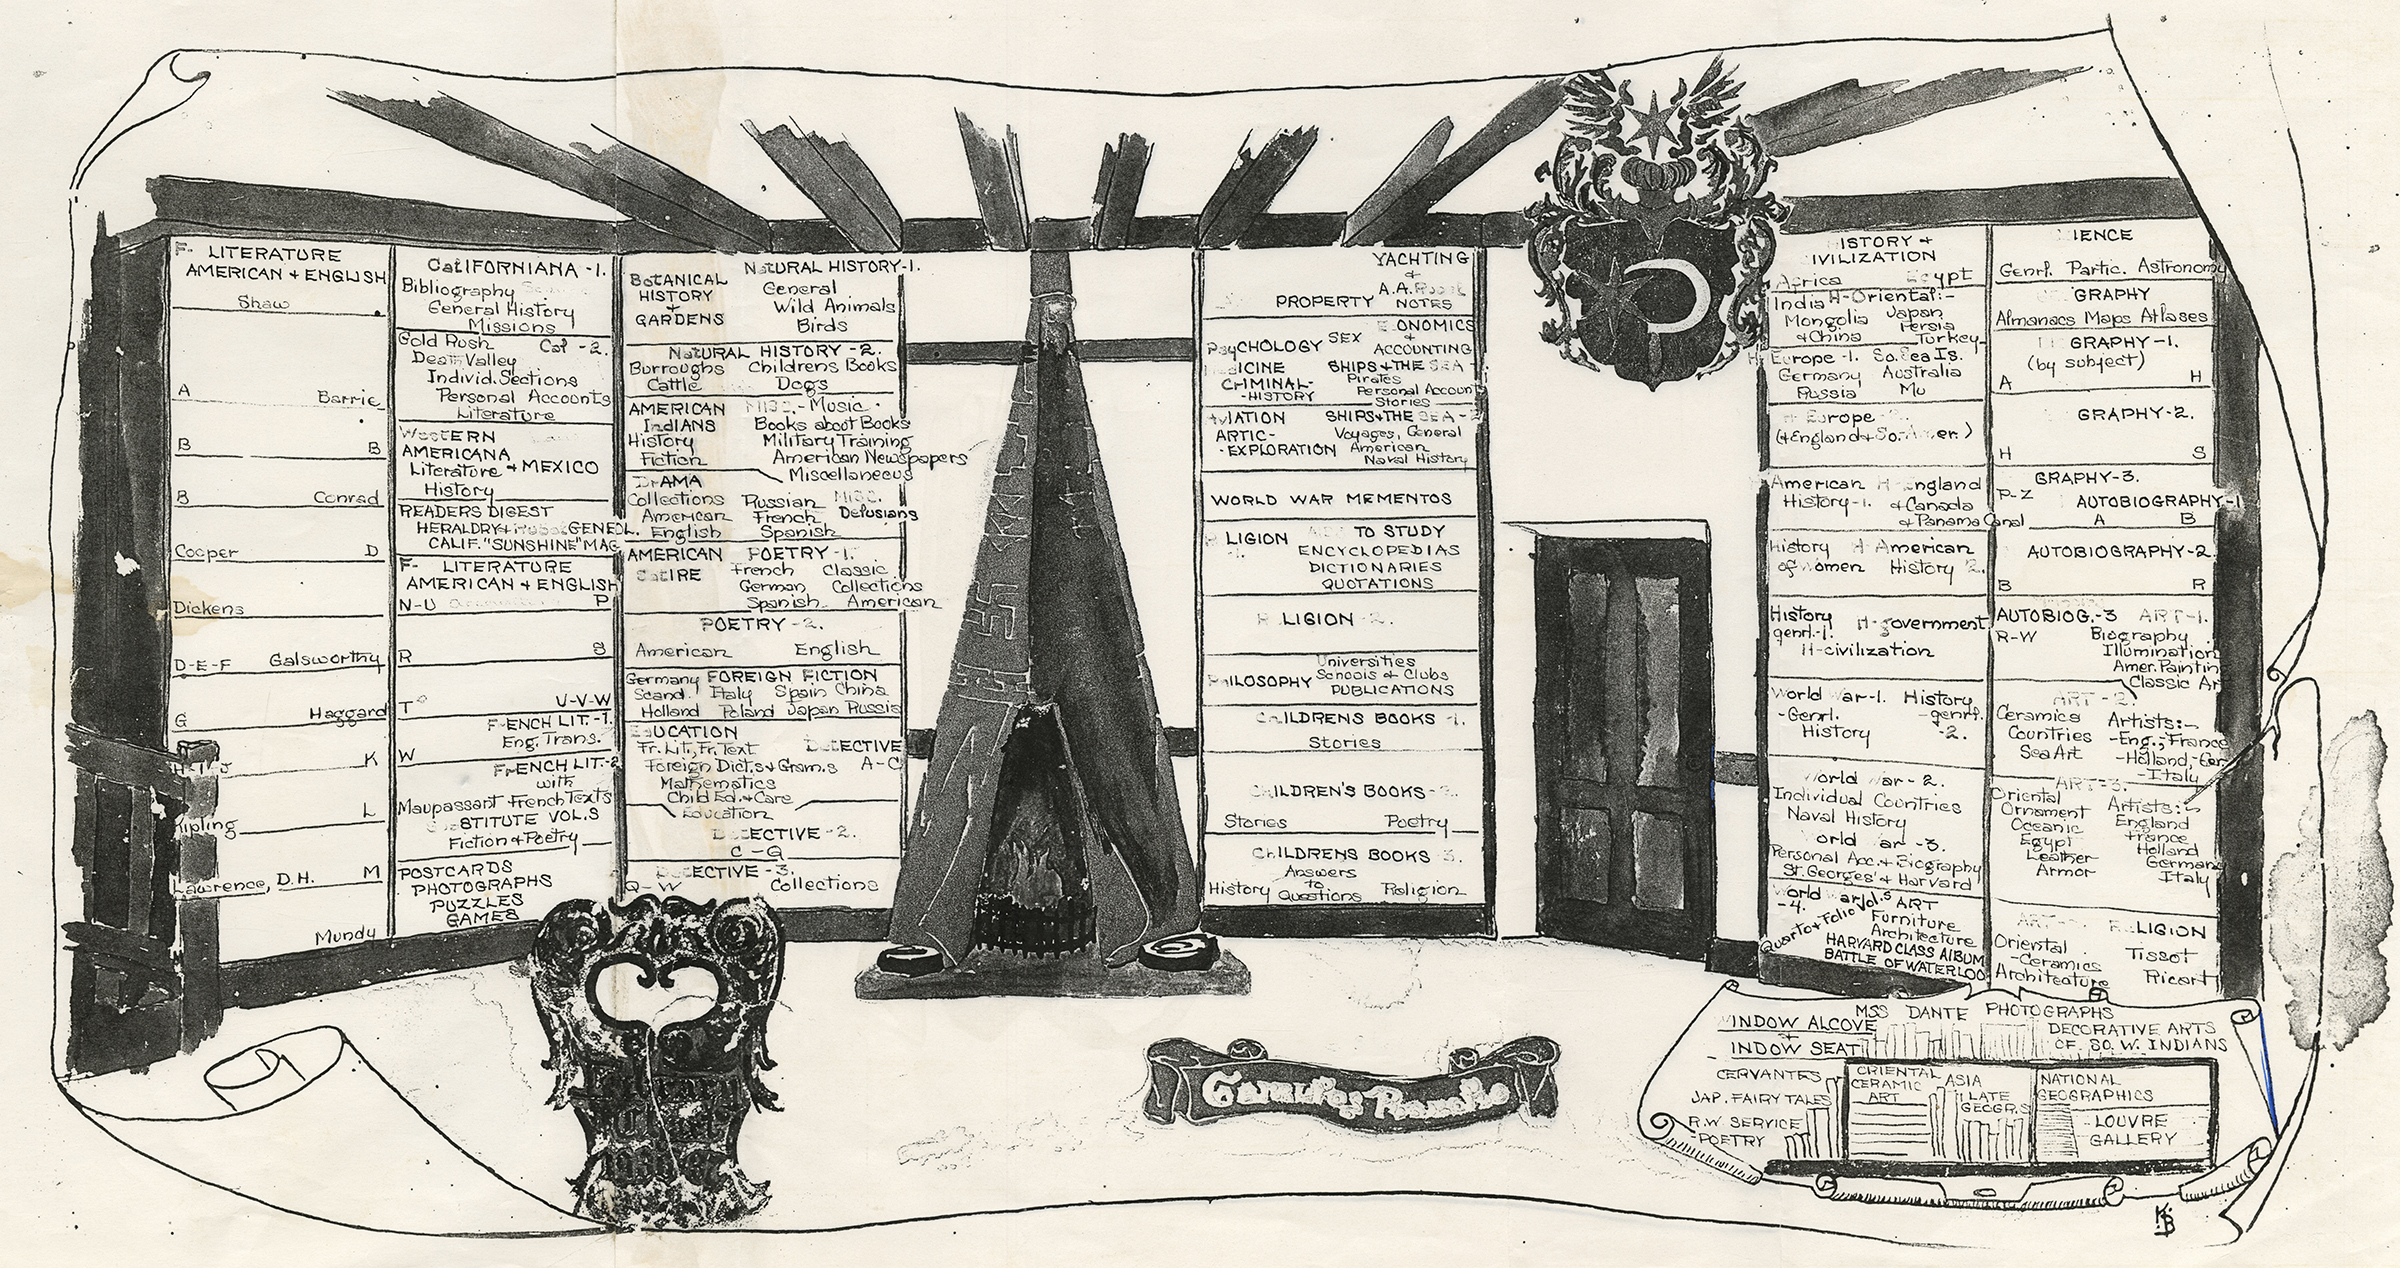 F- LITERATURE
AMERICAN + ENGLISH
Shaw
A Barrie
B B
B Conrad
Cooper D
Dickens
D-E-F Galsworthy
G Haggard
H-I-J K
Kipling L
Lawrence, D.H. M
Mundy
CaliFORNIANA -1.
Bibliography
General History
Missions
Gold Rush Cal -2.
Death Valley
Individ. Sections
Personal Accounts
Literature
WesTERN
AMERICANA
Literature + MEXICO
History
READERS DIGEST
HERALDRY+ GENEOL.
CALIF. "SUNSHINE" MAG.
F- LITERATURE
AMERICAN + ENGLISH
N-U P
R S
T U-V-W
W
FRENCH LIT.-1.
Eng. Trans.
FRENCH LIT.-2
with
Maupassant French Texts
STITUTE VOL.S
Fiction + Poetry
POSTCARDS
PHOTOGRAPHS
PUZZLES
GAMES
BoTANICAL
HISTORY
+
GARDENS
NaTURAL HISTORY-1.
General
Wild Animals
Birds
NaTURAL HISTORY -2.
Burroughs Childrens Books
Cattle Dogs
AMERICAN
IndIANS
History
Fiction
MISC.- Music
Books about Books
Military Training
American Newspapers
Miscellaneous
DrAMA
Collections Russian Misc.
American French Delusians
English Spanish
AMERICAN POETRY -1.
SatIRE French Classic
German Collections
Spanish American
POETRY -2.
American English
Germany FOREIGN FICTION
Scand. Italy Spain China
Holland Poland Japan Russia
EdUCATION
Fr. Lit., Fr. Text DeTECTIVE
Foreign Dict.s + Gram.s A-C
Mathematics
Child Ed. + Care
Education
DeTECTIVE -2.
C - Q
DeTECTIVE -3.
Q-W Collections
YACHTING
+
PROPERTY A.A.
NOTES
PsyCHOLOGY SEX ECONOMICS
+
ACCOUNTING
MedICINE SHIPS+THE SEA -1
CRIMINAL- Pirates
-HISTORY Personal Account
Stories
AVIATION SHIPS+THE SEA -2
ARTIC- Voyages, General
-EXPLORATION American
Naval History
WORLD WAR MEMENTOS
LIGION TO STUDY
ENCYCLOPEDIAS
DICTIONARIES
QUOTATIONS
LIGION -2.
Universities
PhILOSOPHY Schools + Clubs
PUBLICATIONS
ChILDRENS BOOKS -1.
Stories
ILDREN'S BOOKS-2.
Stories Poetry
ChILDRENS BOOKS 3.
Answers
to
History Questions Religion
ISTORY +
IVILIZATION
Africa Egypt
India H-Oriental:-
Mongolia Japan
+China Persia
Turkey
H- Europe -1. So. Sea Is.
Germany Australia
Russia Mu
H Europe -2.
(+England + So. Amer.)
American H England
History-1. + Canada
+ Panama Canal
History H American
of Women History 2.
History H-government
genrl.-1.
H-civilization
World War-1. History
-Genrl. -genrl.
History -2.
World War - 2.
Individual Countries
Naval History
World War -3.
Personal Acc. + Biography
St. Georges' + Harvard
World War Vol.s ART
-4.
Quarto + Folio Furniture
Architecture
HARVARD CLASS AlBUM
BATTLE OF WATERLOO
IENCE
Genrl. Partic. Astronomy
GRAPHY
Almanacs Maps Atlases
GRAPHY -1.
(by subject)
A H
GRAPHY-2.
H S
GRAPHY-3.
P-Z AUTOBIOGRAPHY-1
A B
AUTOBIOGRAPHY-2.
B R
AUTOBIOG.-3 ART-1.
R-W Biography
Illumination
Amer. Painting
Classic Art
ART -2.
Ceramics Artists:-
Countries -Eng., France
Sea Art -Holland,-Ger.
-Italy
ART-3.
Oriental Artists:-
Ornament England
Oceanic France
Egypt Holland
Leather Germany
Armor Italy
ART- RELIGION
Oriental Tissot
-Ceramics
Architecture Ricart
MSS DANTE PHOTOGRAPHS
INDOW ALCOVE
+
INDOW SEAT
DECORATIVE ARTS
OF SO. W. INDIANS
CERVANTES
JAP. FAIRY TALES
R.W SERVICE
-POETRY
ORIENTAL
CERAMIC
ART
ASIA
LATE
GEOGR.S
NATIONAL
GEOGRAPHICS
-LOUVRE
GALLERY
Library
Chart
KB